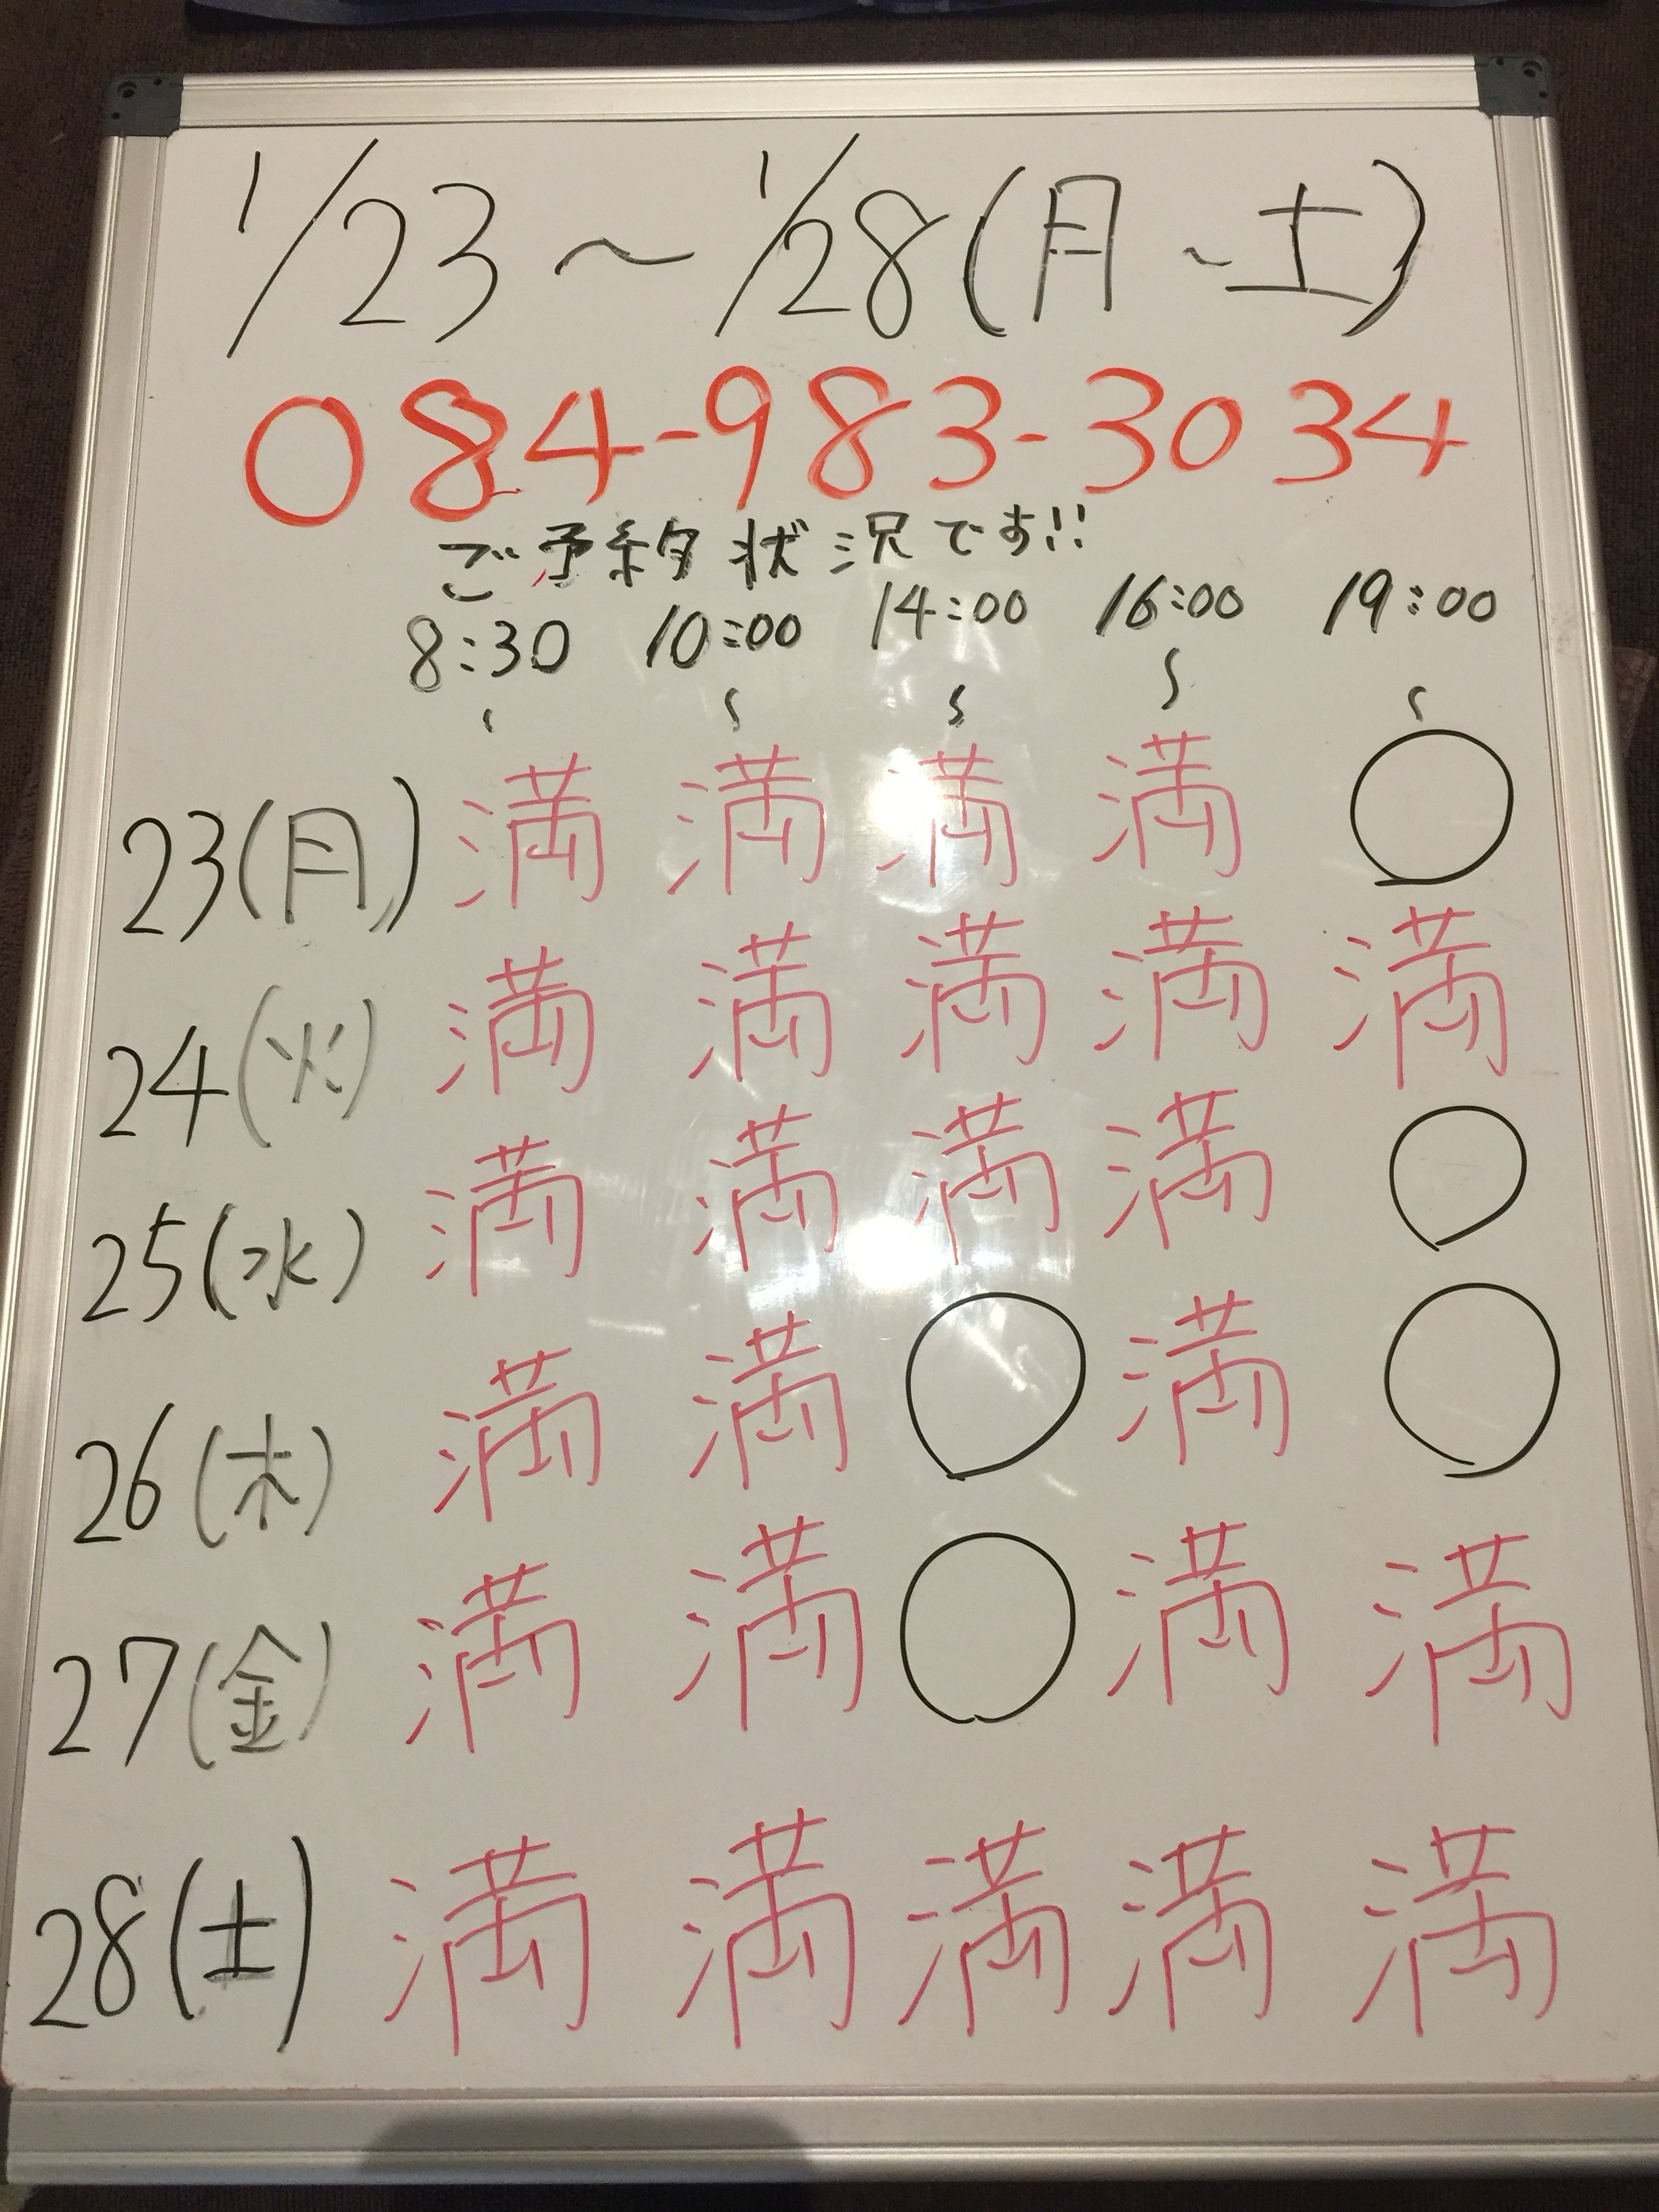 1/23～1/28(月～土)
084-983-3034
ご予約状況です!!
8:30 10:00 14:00 16:00 19:00
～ ～ ～ ～ ～
23(月) 満 満 満 満 ○
24(火) 満 満 満 満 満
25(水) 満 満 満 満 ○
26(木) 満 満 ○ 満 ○
27(金) 満 満 ○ 満 満
28(土) 満 満 満 満 満